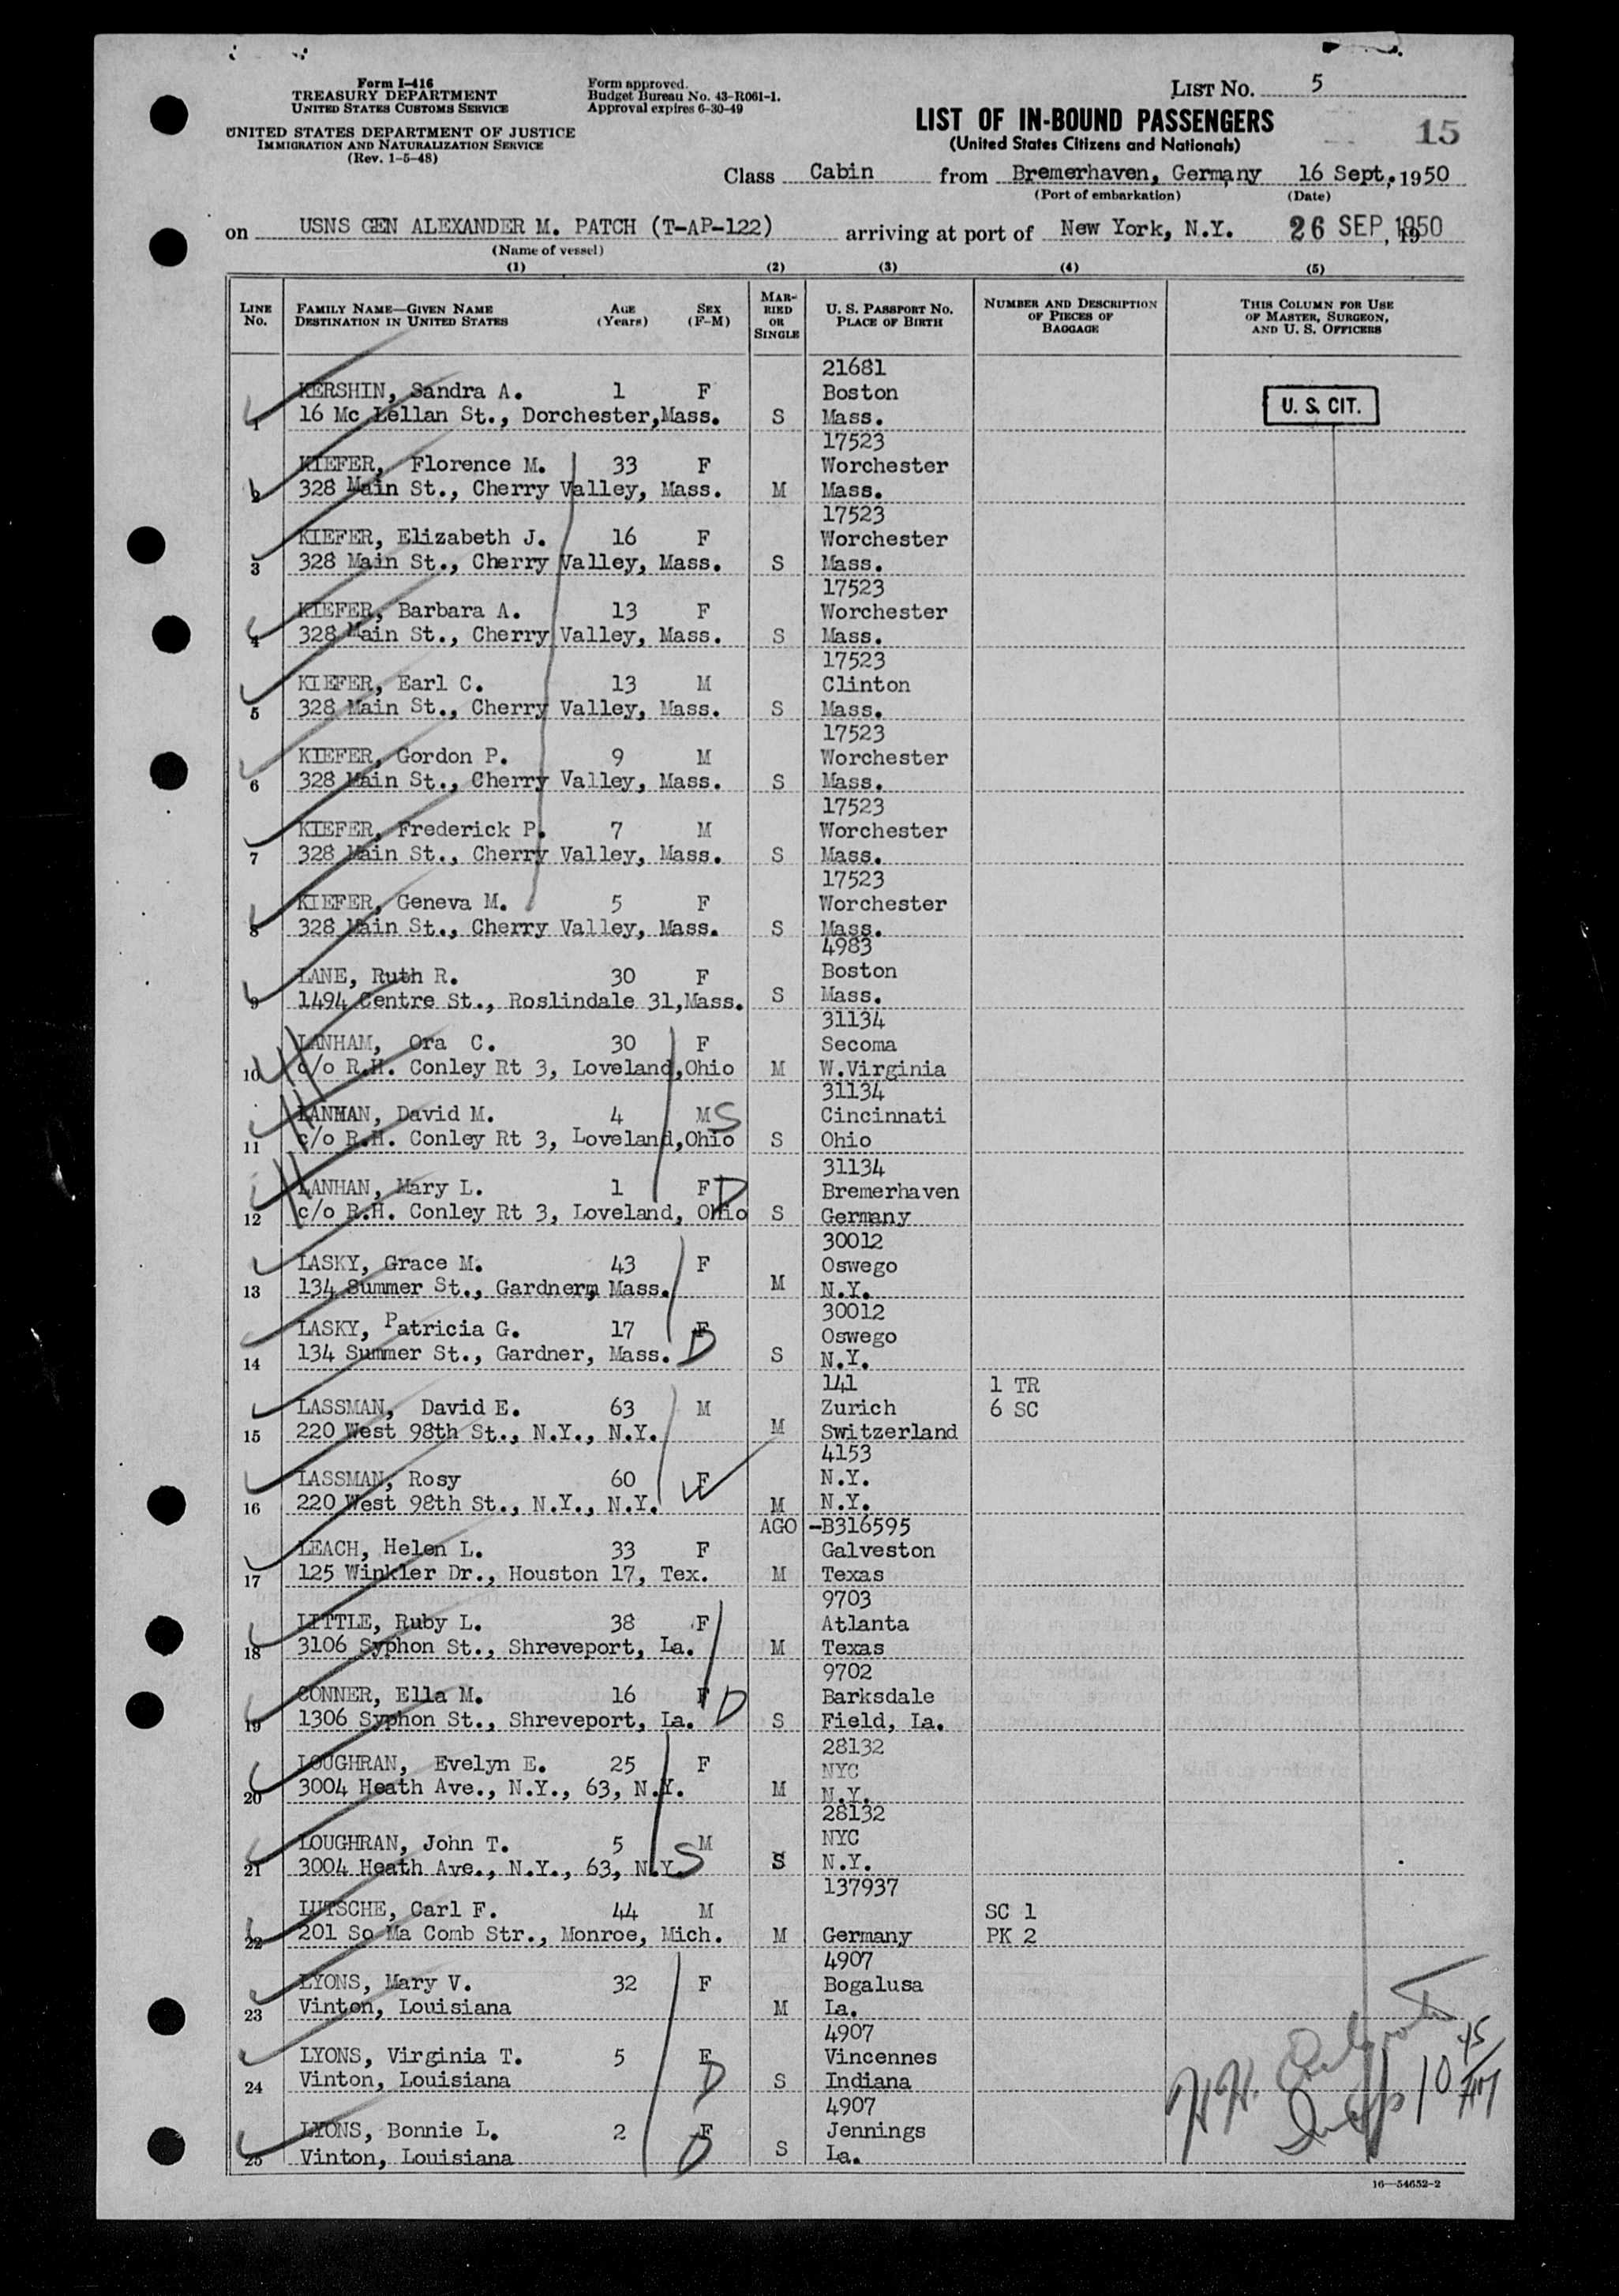 Form I-416
TREASURY DEPARTMENT
UNITED STATES CUSTOMS SERVICE
UNITED STATES DEPARTMENT OF JUSTICE
IMMIGRATION AND NATURALIZATION SERVICE
(Rev. 1-5-48)
Form approved.
Budget Bureau No. 43-R061-1.
Approval expires 6-30-49
LIST NO. 5
LIST OF IN-BOUND PASSENGERS
(United States Citizens and Nationals)
15
Class Cabin from Bremerhaven, Germany 16 Sept, 1950
(Port of embarkation) (Date)
on USNS GEN ALEXANDER M. PATCH (T-AP-122) arriving at port of New York, N.Y. 26 SEP, 1950
(Name of vessel)
(1) (2) (3) (4) (5)
LINE No. FAMILY NAME—GIVEN NAME DESTINATION IN UNITED STATES AGE (Years) SEX (F-M) MARRIED OR SINGLE U. S. PASSPORT NO. PLACE OF BIRTH NUMBER AND DESCRIPTION OF PIECES OF BAGGAGE THIS COLUMN FOR USE OF MASTER, SURGEON, AND U. S. OFFICERS
21681
KERSHIN, Sandra A. 1 F Boston U. S. CIT.
1 16 Mc Lellan St., Dorchester,Mass. S Mass.
17523
KIEFER, Florence M. 33 F Worchester
2 328 Main St., Cherry Valley, Mass. M Mass.
17523
KIEFER, Elizabeth J. 16 F Worchester
3 328 Main St., Cherry Valley, Mass. S Mass.
17523
KIEFER, Barbara A. 13 F Worchester
4 328 Main St., Cherry Valley, Mass. S Mass.
17523
KIEFER, Earl C. 13 M Clinton
5 328 Main St., Cherry Valley, Mass. S Mass.
17523
KIEFER, Gordon P. 9 M Worchester
6 328 Main St., Cherry Valley, Mass. S Mass.
17523
KIEFER, Frederick P. 7 M Worchester
7 328 Main St., Cherry Valley, Mass. S Mass.
17523
KIEFER, Geneva M. 5 F Worchester
8 328 Main St., Cherry Valley, Mass. S Mass.
4983
LANE, Ruth R. 30 F Boston
9 1494 Centre St., Roslindale 31,Mass. S Mass.
31134
LANHAM, Ora C. 30 F Secoma
10 c/o R.H. Conley Rt 3, Loveland,Ohio M W.Virginia
31134
LANHAN, David M. 4 M S Cincinnati
11 c/o R.H. Conley Rt 3, Loveland,Ohio S Ohio
31134
LANHAN, Mary L. 1 F D Bremerhaven
12 c/o R.H. Conley Rt 3, Loveland, Ohio S Germany
30012
LASKY, Grace M. 43 F Oswego
13 134 Summer St., Gardner, Mass. M N.Y.
30012
LASKY, Patricia G. 17 F D Oswego
14 134 Summer St., Gardner, Mass. S N.Y.
141 1 TR
LASSMAN, David E. 63 M Zurich 6 SC
15 220 West 98th St., N.Y., N.Y. M Switzerland
4153
LASSMAN, Rosy 60 F W N.Y.
16 220 West 98th St., N.Y., N.Y. M N.Y.
AGO -B316595
LEACH, Helen L. 33 F Galveston
17 125 Winkler Dr., Houston 17, Tex. M Texas
9703
LITTLE, Ruby L. 38 F Atlanta
18 3106 Syphon St., Shreveport, La. M Texas
9702
CONNER, Ella M. 16 F D Barksdale
19 1306 Syphon St., Shreveport, La. S Field, La.
28132
LOUGHRAN, Evelyn E. 25 F NYC
20 3004 Heath Ave., N.Y., 63, N.Y. M N.Y.
28132
LOUGHRAN, John T. 5 M S NYC
21 3004 Heath Ave., N.Y., 63, N.Y. S N.Y.
137937
LUTSCHE, Carl F. 44 M SC 1
22 201 So Ma Comb Str., Monroe, Mich. M Germany PK 2
4907
LYONS, Mary V. 32 F Bogalusa
23 Vinton, Louisiana M La.
4907
LYONS, Virginia T. 5 F D Vincennes
24 Vinton, Louisiana S Indiana
4907
LYONS, Bonnie L. 2 F D Jennings
25 Vinton, Louisiana S La.
H.H.
10 45
16—54652-2